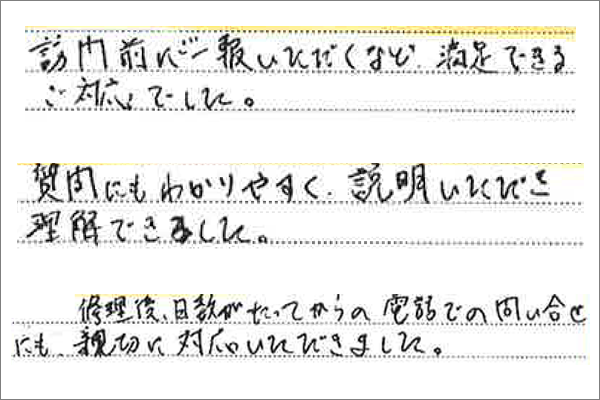 訪問前にご一報いただくなど、満足できる
ご対応でした。
質問にもわかりやすく、説明いただき
理解できました。
修理後、日数がたってからの電話での問い合せ
にも、親切に対応いただきました。